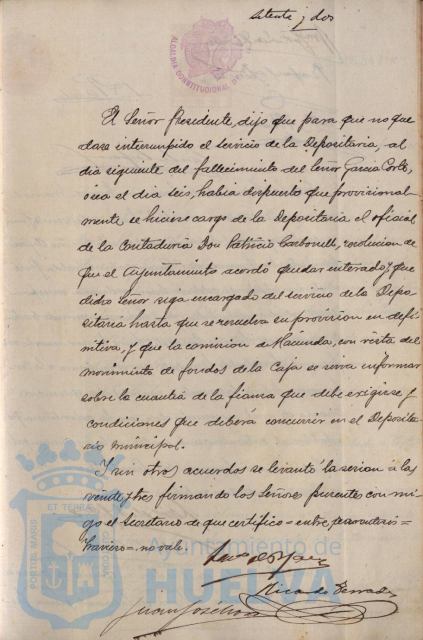 setenta y dos
ALCALDIA CONSTITUCIONAL
El Señor Presidente, dijo que para que no que
dase interrumpido el servicio de la Depositaria, al
dia siguiente del fallecimiento del Señor Garcia Cortés,
ó sea el dia seis, habia dispuesto que provisional
mente se hiciese cargo de la Depositaria el oficial
de la Contaduria Don Patricio Carbonell, resolucion de
que el Ayuntamiento acordó quedar enterado, y que
dicho Señor siga encargado del servicio de la Depo-
sitaria hasta que se resuelva su provision en defi-
nitiva, y que la comision de Hacienda, con vista del
movimiento de fondos de la Caja se sirva informar
sobre la cuantia de la fianza que debe exigirse y
condiciones que deberá concurrir en el Deposita-
rio municipal.
Y sin otros acuerdos se levantó la sesion a las
veinte y tres firmando los Señores presentes con mi-
go el Secretario de que certifico = entre
= no vale.
Juan José
PORTUS MARIS
ET TERRAE
CUSTODIA
Ayuntamiento de
HUELVA